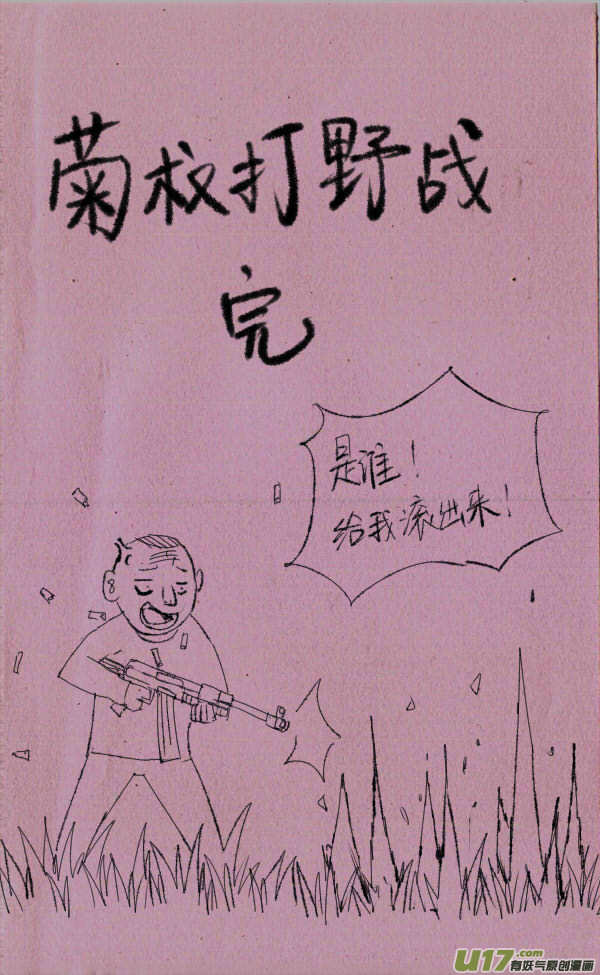 菊叔打野战
完
是谁！
给我滚出来！
U17.com
有妖气原创漫画